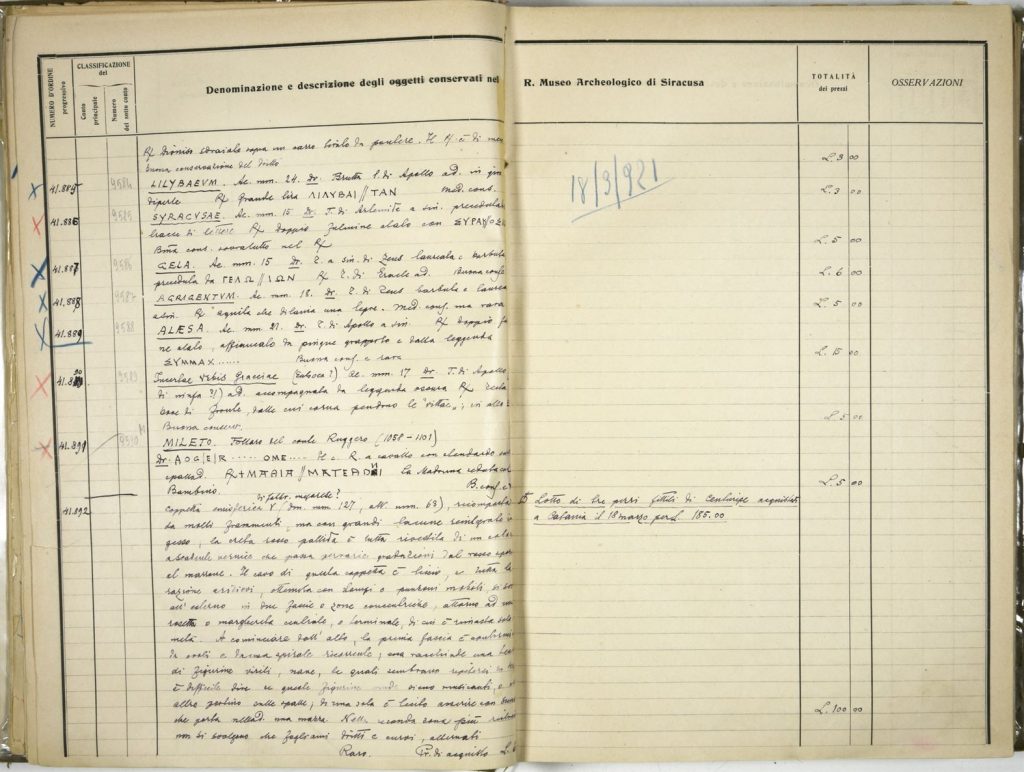 NUMERO D'ORDINE progressivo
CLASSIFICAZIONE del
Conto principale
Numero del sotto conto
Denominazione e descrizione degli oggetti conservati nel R. Museo Archeologico di Siracusa
TOTALITÀ dei prezzi
OSSERVAZIONI
R/ Dioniso sdraiato sopra un carro tirato da pantere. Il R/ è di men
buona conservazione del dritto L. 3 00
18/3/921
41.885 9584 LILYBAEVM. Ae. mm. 24. Dr. Brutta t. di Apollo ad. in giro
diperle R/ Grande lira ΛΙΛΥΒΑΙ // ΤΑΝ Med. cons. L. 3 00
41.886 9585 SYRACVSAE. Ae. mm. 15 Dr. T. di Artemite a sin. preceduta
tracce di lettere R/ Doppio fulmine alato con ΣΥΡΑΚ/ΟΣ
Bma cons. sovratutto nel R/ L. 5 00
41.887 9586 GELA. Ae. mm. 15 Dr. T. a sin. di Zeus laureata e barbuta
preceduta da ΓΕΛΩ // ΙΩΝ R/ T. di Eracle ad. Buona cons. L. 6 00
41.888 9587 AGRIGENTVM. Ae. mm. 18. Dr. T. di Zeus barbuto e laurea
a sin. R/ aquila che dilania una lepre. Med. cons. ma rara L. 5 00
41.889 9588 ALÆSA. Ae. mm. 21. Dr. T. di Apollo a sin. R/ Doppio
ne alato, affiancato da pingue grappolo e dalla leggenda
ΣΥΜΜΑΧ...... Buona cons. e rara L. 15 00
41.890 9589 Incertae Urbis Graeciae Ae. mm. 17 Dr. T. di Apollo
di ninfa ?/) ad. accompagnata da leggenda oscura R/ Testa
bove di fronte, dalle cui corna pendono le "vittae"; in alto
Buona conserv. L. 5 00
41.891 9590 MILETO. Follaro del conte Ruggero (1058-1101)
Dr. ΛΟG/E/R ..... OME.... Il c. R. a cavallo con stendardo
spalla d. R/ + MARIA // MATER D NI la Madonna seduta col
Bambino. B. cons. L. 5 00
di fabbr. megarese?
41.892 Coppetta emisferica (dm. mm. 127, alt. mm. 63), ricomposta
Lotto di tre pezzi fittili di Centuripe acquistati
da molti frammenti, ma con grandi lacune reintegrate in
a Catania il 18 marzo per L. 185.00
gesso, la creta rosso pallida è tutta rivestita di un color
vernice che passa per varie gradazioni dal rosso
al marrone. Il cavo di questa coppetta è liscio, e tutta la
razione ottenuta con stampi o punzoni mobili, si
all'esterno in due fascie o zone concentriche, attorno ad una
rosetta o margherita centrale, o terminale, di cui è rimasta sola
metà. A cominciare dall'alto, la prima fascia è
da ovoli e da una spirale ricorrente; essa racchiude una
di figurine virili, nane, le quali sembrano ripetersi
è difficile dire se queste figurine nude siano musicanti, o
altro portino sulle spalle; di una sola è lecito asserire con
che porta nella d. una mazza. Nella seconda zona più L. 100 00
non si svolgono che fogliami dritti e curvi, alternati
Raro. Pr. di acquisto L.